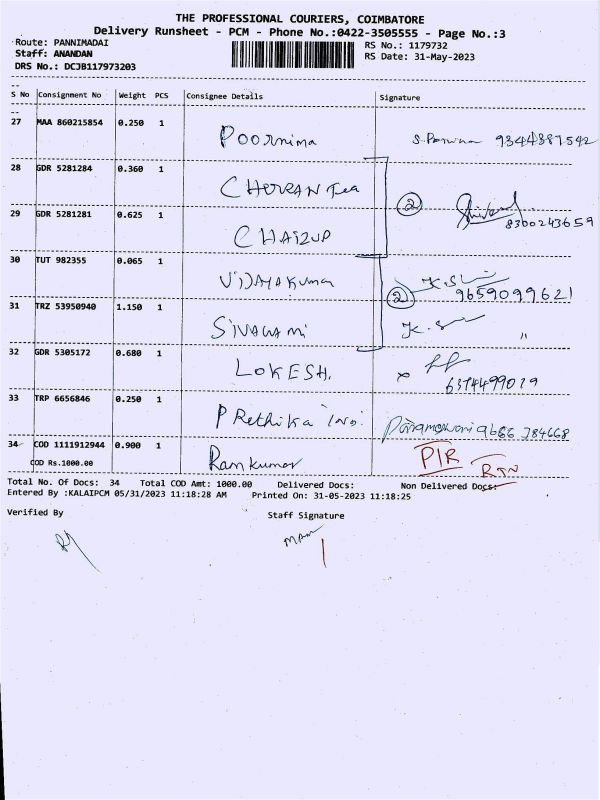 THE PROFESSIONAL COURIERS, COIMBATORE
Delivery Runsheet - PCM - Phone No.:0422-3505555 - Page No.:3
Route: PANNIMADAI
RS No.: 1179732
Staff: ANANDAN
RS Date: 31-May-2023
DRS No.: DCJB117973203
S No Consignment No Weight PCS Consignee Details Signature
27 MAA 860215854 0.250 1 Poornima 9344387542
28 GDR 5281284 0.360 1 CHERRAN Tea
2
8300243659
29 GDR 5281281 0.625 1 CHAIZUP
30 TUT 982355 0.065 1 Vijaya Kumar
2
9659099621
31 TRZ 53950940 1.150 1 SIVAGAMI "
32 GDR 5305172 0.680 1 LOKESH.
6374499019
33 TRP 6656846 0.250 1 PRethika 9666 784668
34 COD 1111912944 0.900 1 Ramkumar P/R
COD Rs.1000.00 RTN
Total No. Of Docs: 34 Total COD Amt: 1000.00 Delivered Docs: Non Delivered Docs:
Entered By :KALAIPCM 05/31/2023 11:18:28 AM Printed On: 31-05-2023 11:18:25
Verified By Staff Signature